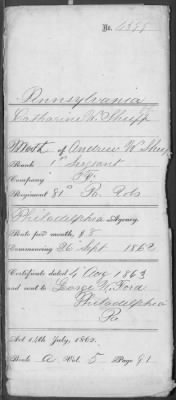 No. 4355
Pennsylvania
Catharine W Shupp
Moth of Andrew W Shupp
Rank 1st Sergeant
Company "F"
Regiment 81" Pa Vols
Philadelphia Agency.
Rate per month, $8
Commencing 26 Sept 1862
Certificate dated 4 Aug 1863
and sent to George W Ford
Philadelphia
Pa
Act 14th July, 1862.
Book A Vol. 5 Page 91